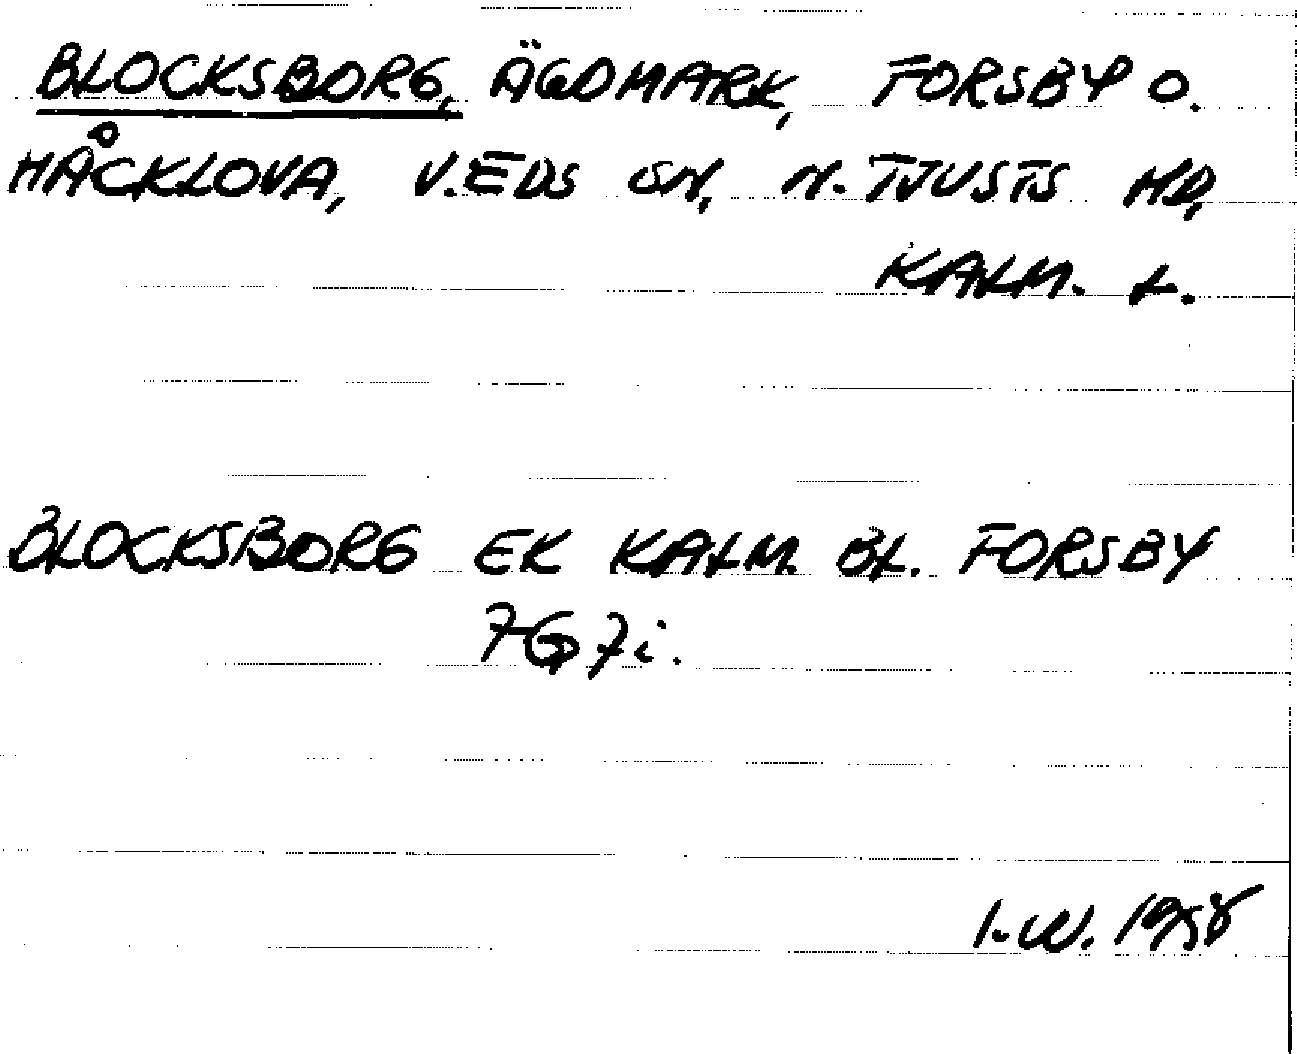 BLOCKSBORG, ÄGOMARK, FORSBY O.
HÅCKLOVA, V.EDS SN, N. TJUSTS HD,
KALM. L.
BLOCKSBORG EK KALM. BL. FORSBY
7G7i.
I.W. 1958